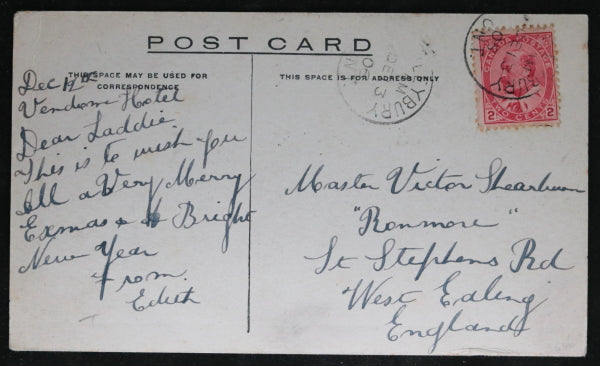 POST CARD
THIS SPACE MAY BE USED FOR
CORRESPONDENCE
THIS SPACE IS FOR ADDRESS ONLY
Dec 12th
Vendome Hotel
Dear Laddie
This is to wish you
all a Very Merry
Exmas & A Bright
New Year
From.
Edith
Master Victor Shearburn
"Ronmore"
St Stephens Rd
West Ealing
England
CANADA POSTAGE
2 2
TWO CENTS
YBURY
PM
DE 13
ONT
BURY
ONT